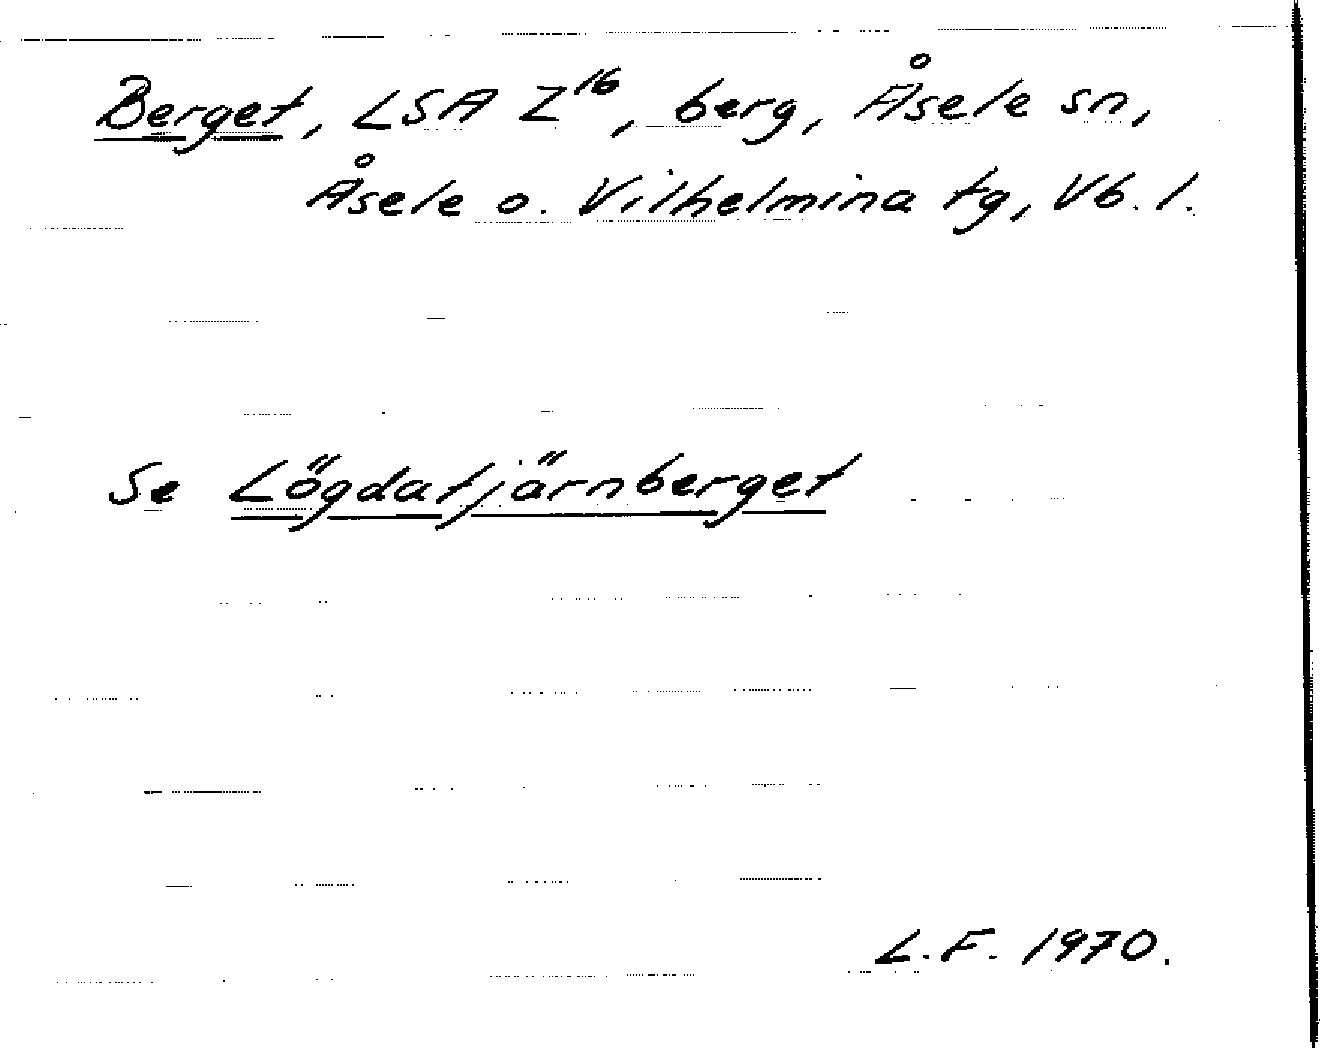 Berget, LSA Z¹⁶, berg, Åsele sn,
Åsele o. Vilhelmina tg, Vb. l.
Se Lögdatjärnberget
L.F. 1970.